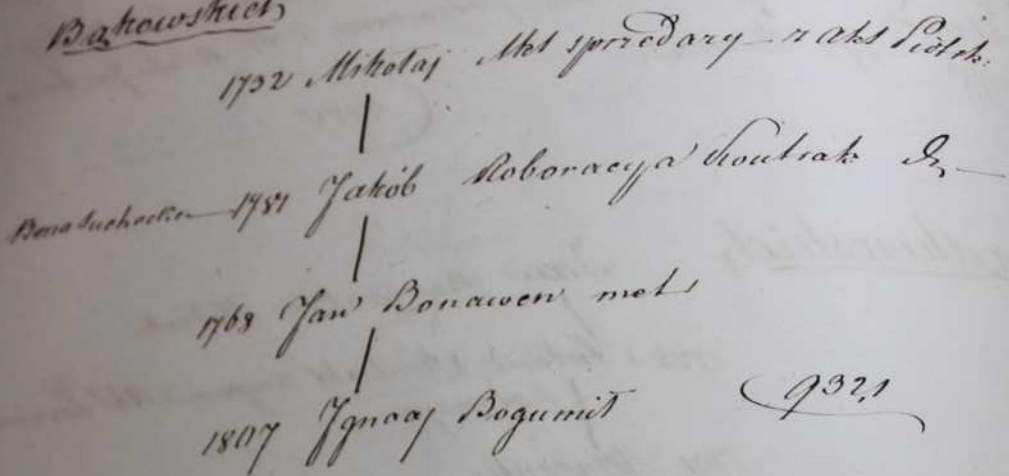 Bąkowskich
1732 Mikołaj Akt sprzedaży z akt Piotrk:
1751 Jakób Roboracya Kontrak
1768 Jan Bonawen met
1807 Ignacy Bogumił 932